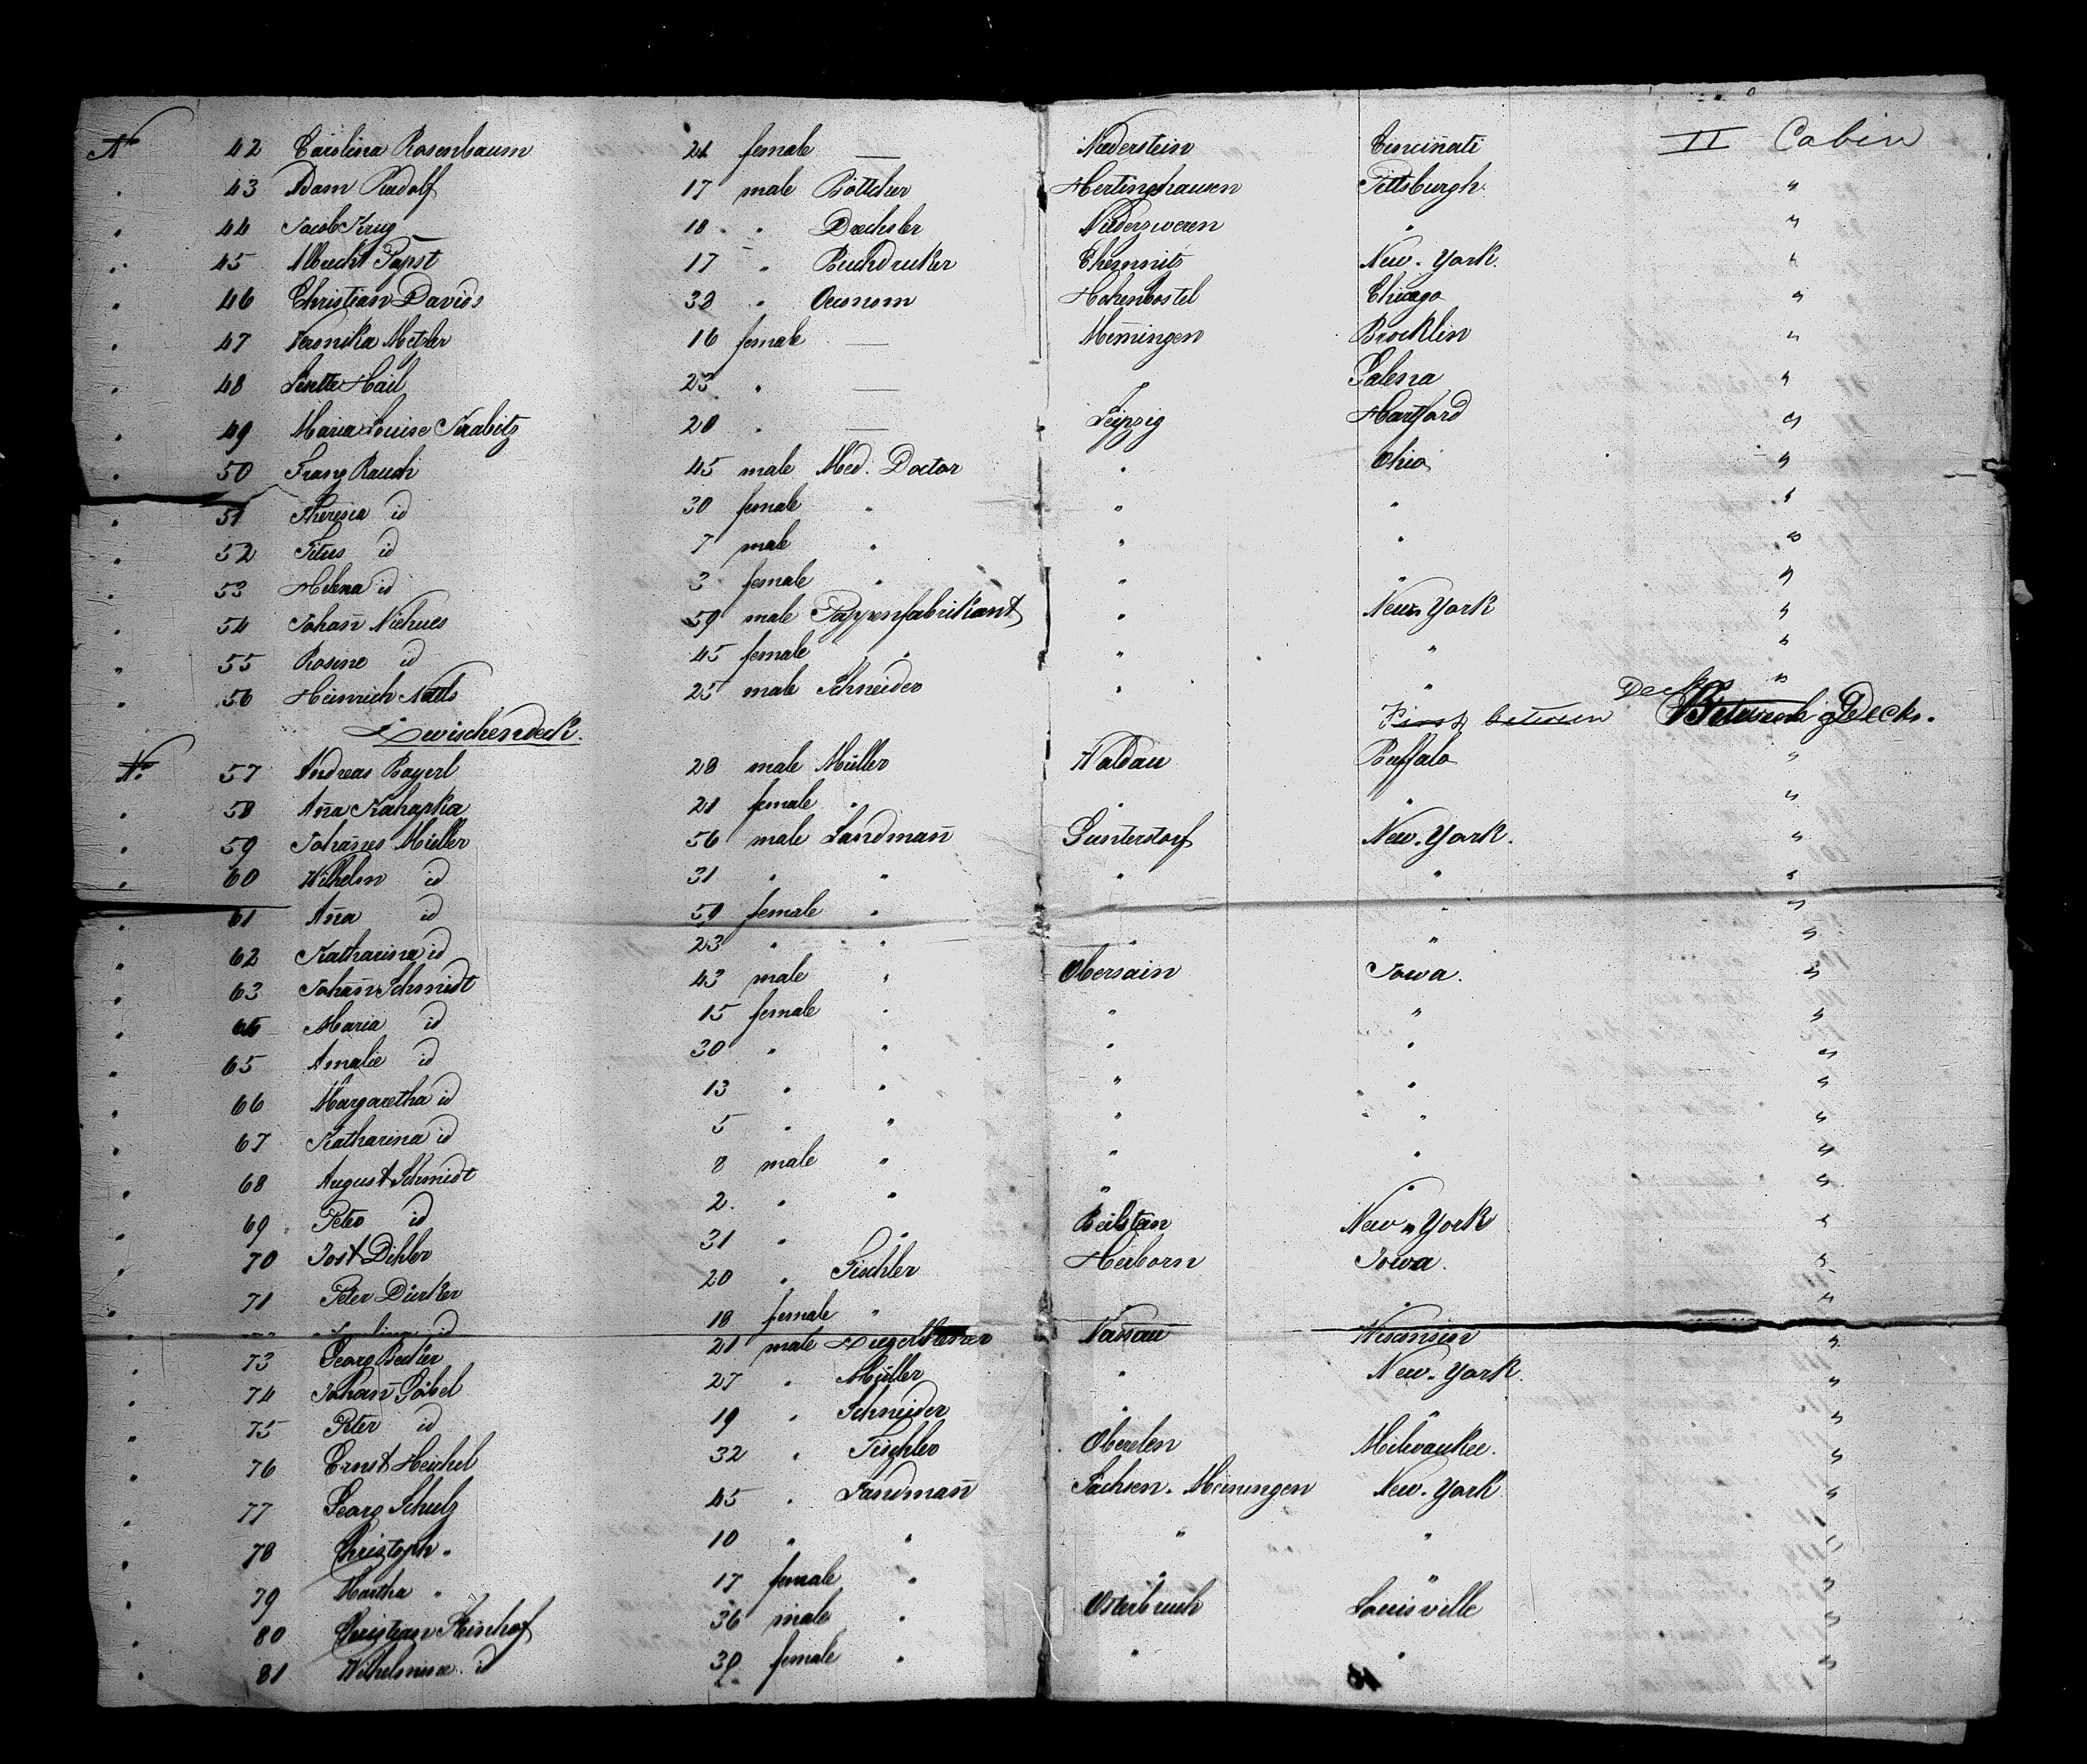 No 42 Carolina Rosenbaum 21 female — Niederstein Cincinati II Cabin
" 43 Adam Rudolf 17 male Böttcher Hertinghausen Pittsburgh "
" 44 Jacob Krug 18 " Drechsler Niederzweren " "
" 45 Albrecht Papst 17 " Buchdruker Chemnitz New-York. "
" 46 Christian Davids 38 " Oeconom Hohenbostel Chicago "
" 47 Veronika Metzler 16 female — Mem̄ingen Brocklin "
" 48 Hail 23 " — " Galena "
" 49 Maria Louise Krabitz 20 " — Leipzig Hartford "
" 50 Franz Rauch 45 male Med. Doctor " Ohio "
" 51 Theresia id 30 female " " " "
" 52 Titus id 7 male " " " "
" 53 Helena id 3 female " " " "
" 54 Johan̄ Niehues 59 male Pappenfabrikant " New-York "
" 55 Rosine id 45 female " " " "
" 56 Heinrich 25 male Schneider " " "
Zwischendeck. First between Decks Between Decks.
No. 57 Andreas Bayerl 28 male Müller Waldau Buffalo "
" 58 An̄a 21 female " " " "
" 59 Johan̄es Müller 56 male Landman̄ Gunterstorf New-York. "
" 60 Wilhelm id 31 " " " " "
" 61 An̄a id 59 female " " "
" 62 Katharina id 23 " " " " "
" 63 Johan̄ Schmidt 43 male " Obersain Iowa. "
" 64 Maria id 15 female " " " "
" 65 Amalie id 30 " " " " "
" 66 Margaretha id 13 " " " " "
" 67 Katharina id 5 " " " " "
" 68 August Schmidt 8 male " " " "
" 69 Peter id 2. " " " " "
" 70 Jost Dihler 31 " " Beilstein New-York "
" 71 Peter Dürker 20 " Tischler Herborn Iowa. "
id 18 female " " " "
" 73 Georg Becker 21 male Nassau Wisconsin "
" 74 Johan̄ Göbel 27 " Müller " New-York "
" 75 Peter id 19 " Schneider " " "
" 76 Ernst Heichel 32 " Tischler Milwaukee. "
" 77 Georg Schulz 45 " Landman̄ Sachsen-Meiningen New-York "
" 78 Christoph " 10 " " " " "
" 79 Martha " 17 female " " " "
" 80 Christian 36 male " Osterbruch Louisville "
" 81 Wilhelmine id 39 female " " " "